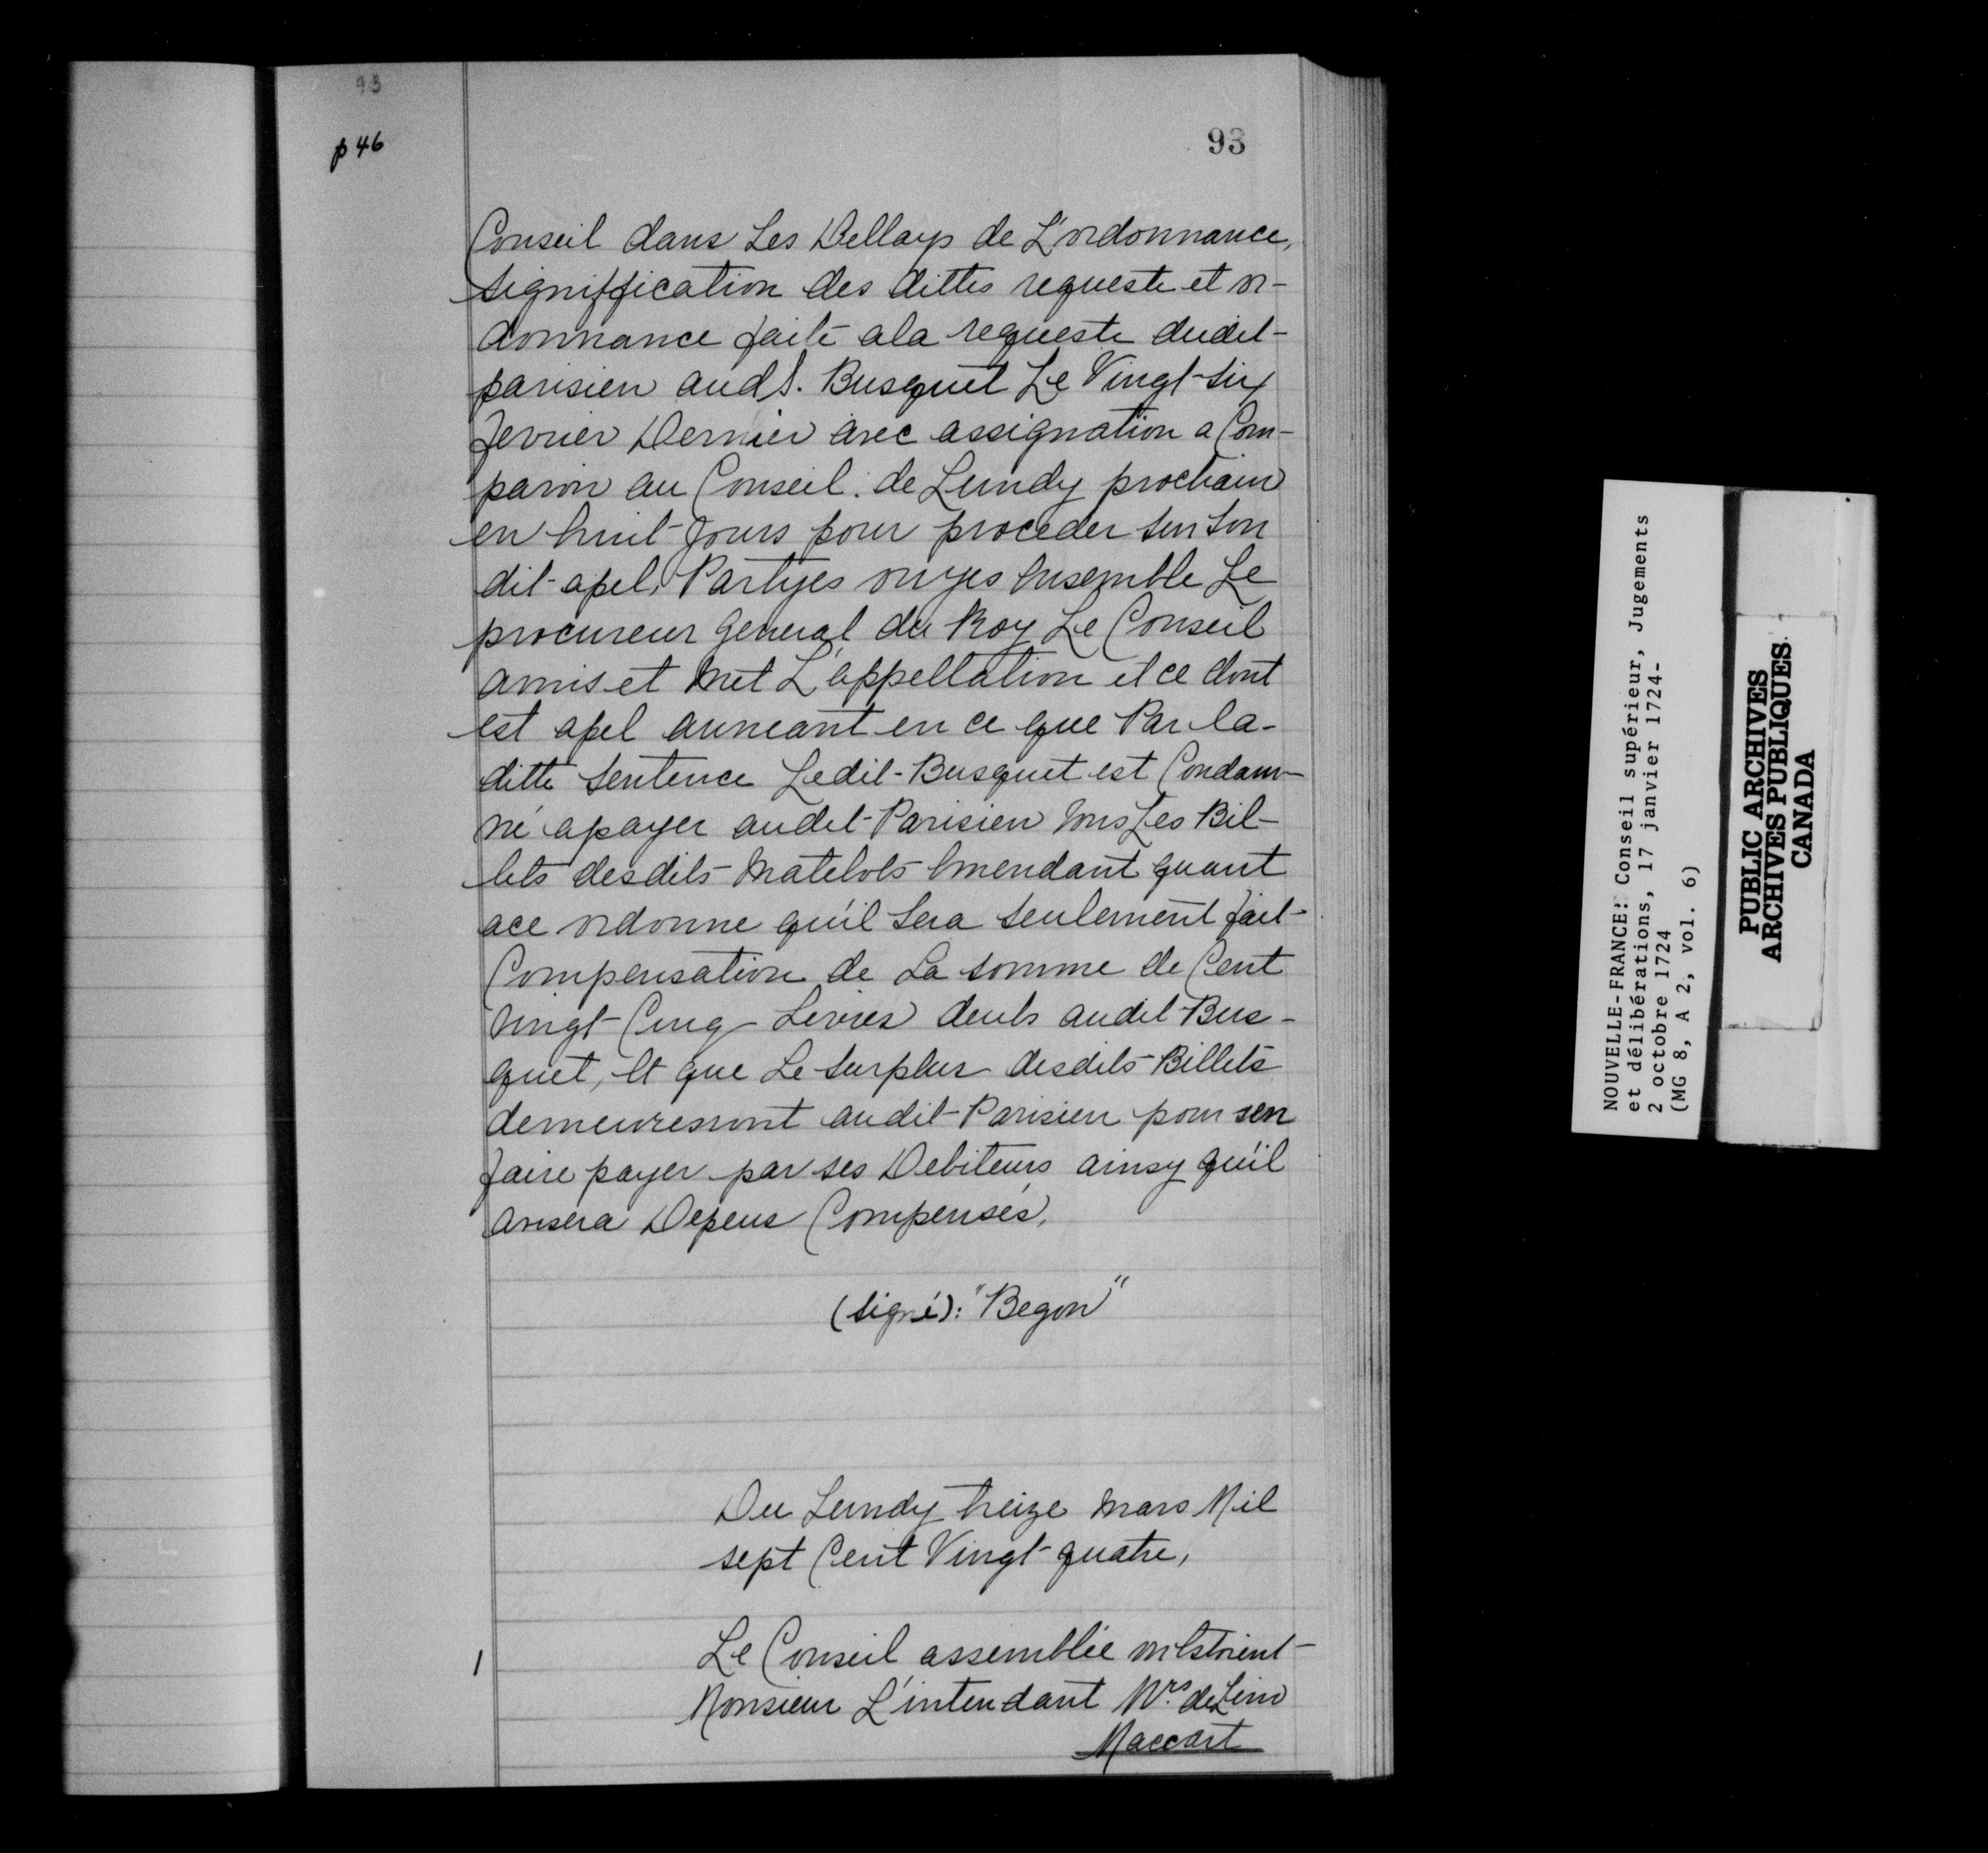 93
p 46
93
Conseil dans Les Dellays de L'ordonnance,
signiffication des dittes requeste et or-
donnance faite a la requeste dudit
parisien aud S. Busquet Le Vingt-six
fevrier Dernier avec assignation a Com-
paroir au Conseil de Lundy prochain
en huit Jours pour proceder sur son
dit apel, Partyes ouyes Ensemble Le
procureur general du Roy Le Conseil
amis et met L'appellation et ce dont
est apel auneant en ce que Par la-
ditte sentence Ledit Busquet est Condam-
né apayer audit Parisien tous Les Bil-
lets desdits matelots Emendant quant
ace ordonne qu'il sera seulement fait
Compensation de La somme de Cent
vingt Cinq Livres deubs audit Bus-
quet, Et que Le surplus desdits Billets
demeureront audit Parisien pour sen
faire payer par ses Debiteurs ainsy qu'il
avisera Depens Compensés,
(signé): "Begon"
Du Lundy treize mars Mil
sept Cent Vingt-quatre,
1
Le Conseil assemblée ou Estoient
Monsieur L'intendant Mrs. de Lino
Maccart
NOUVELLE-FRANCE: Conseil supérieur, Jugements
et délibérations, 17 janvier 1724-
2 octobre 1724
(MG 8, A 2, vol. 6)
PUBLIC ARCHIVES
ARCHIVES PUBLIQUES
CANADA